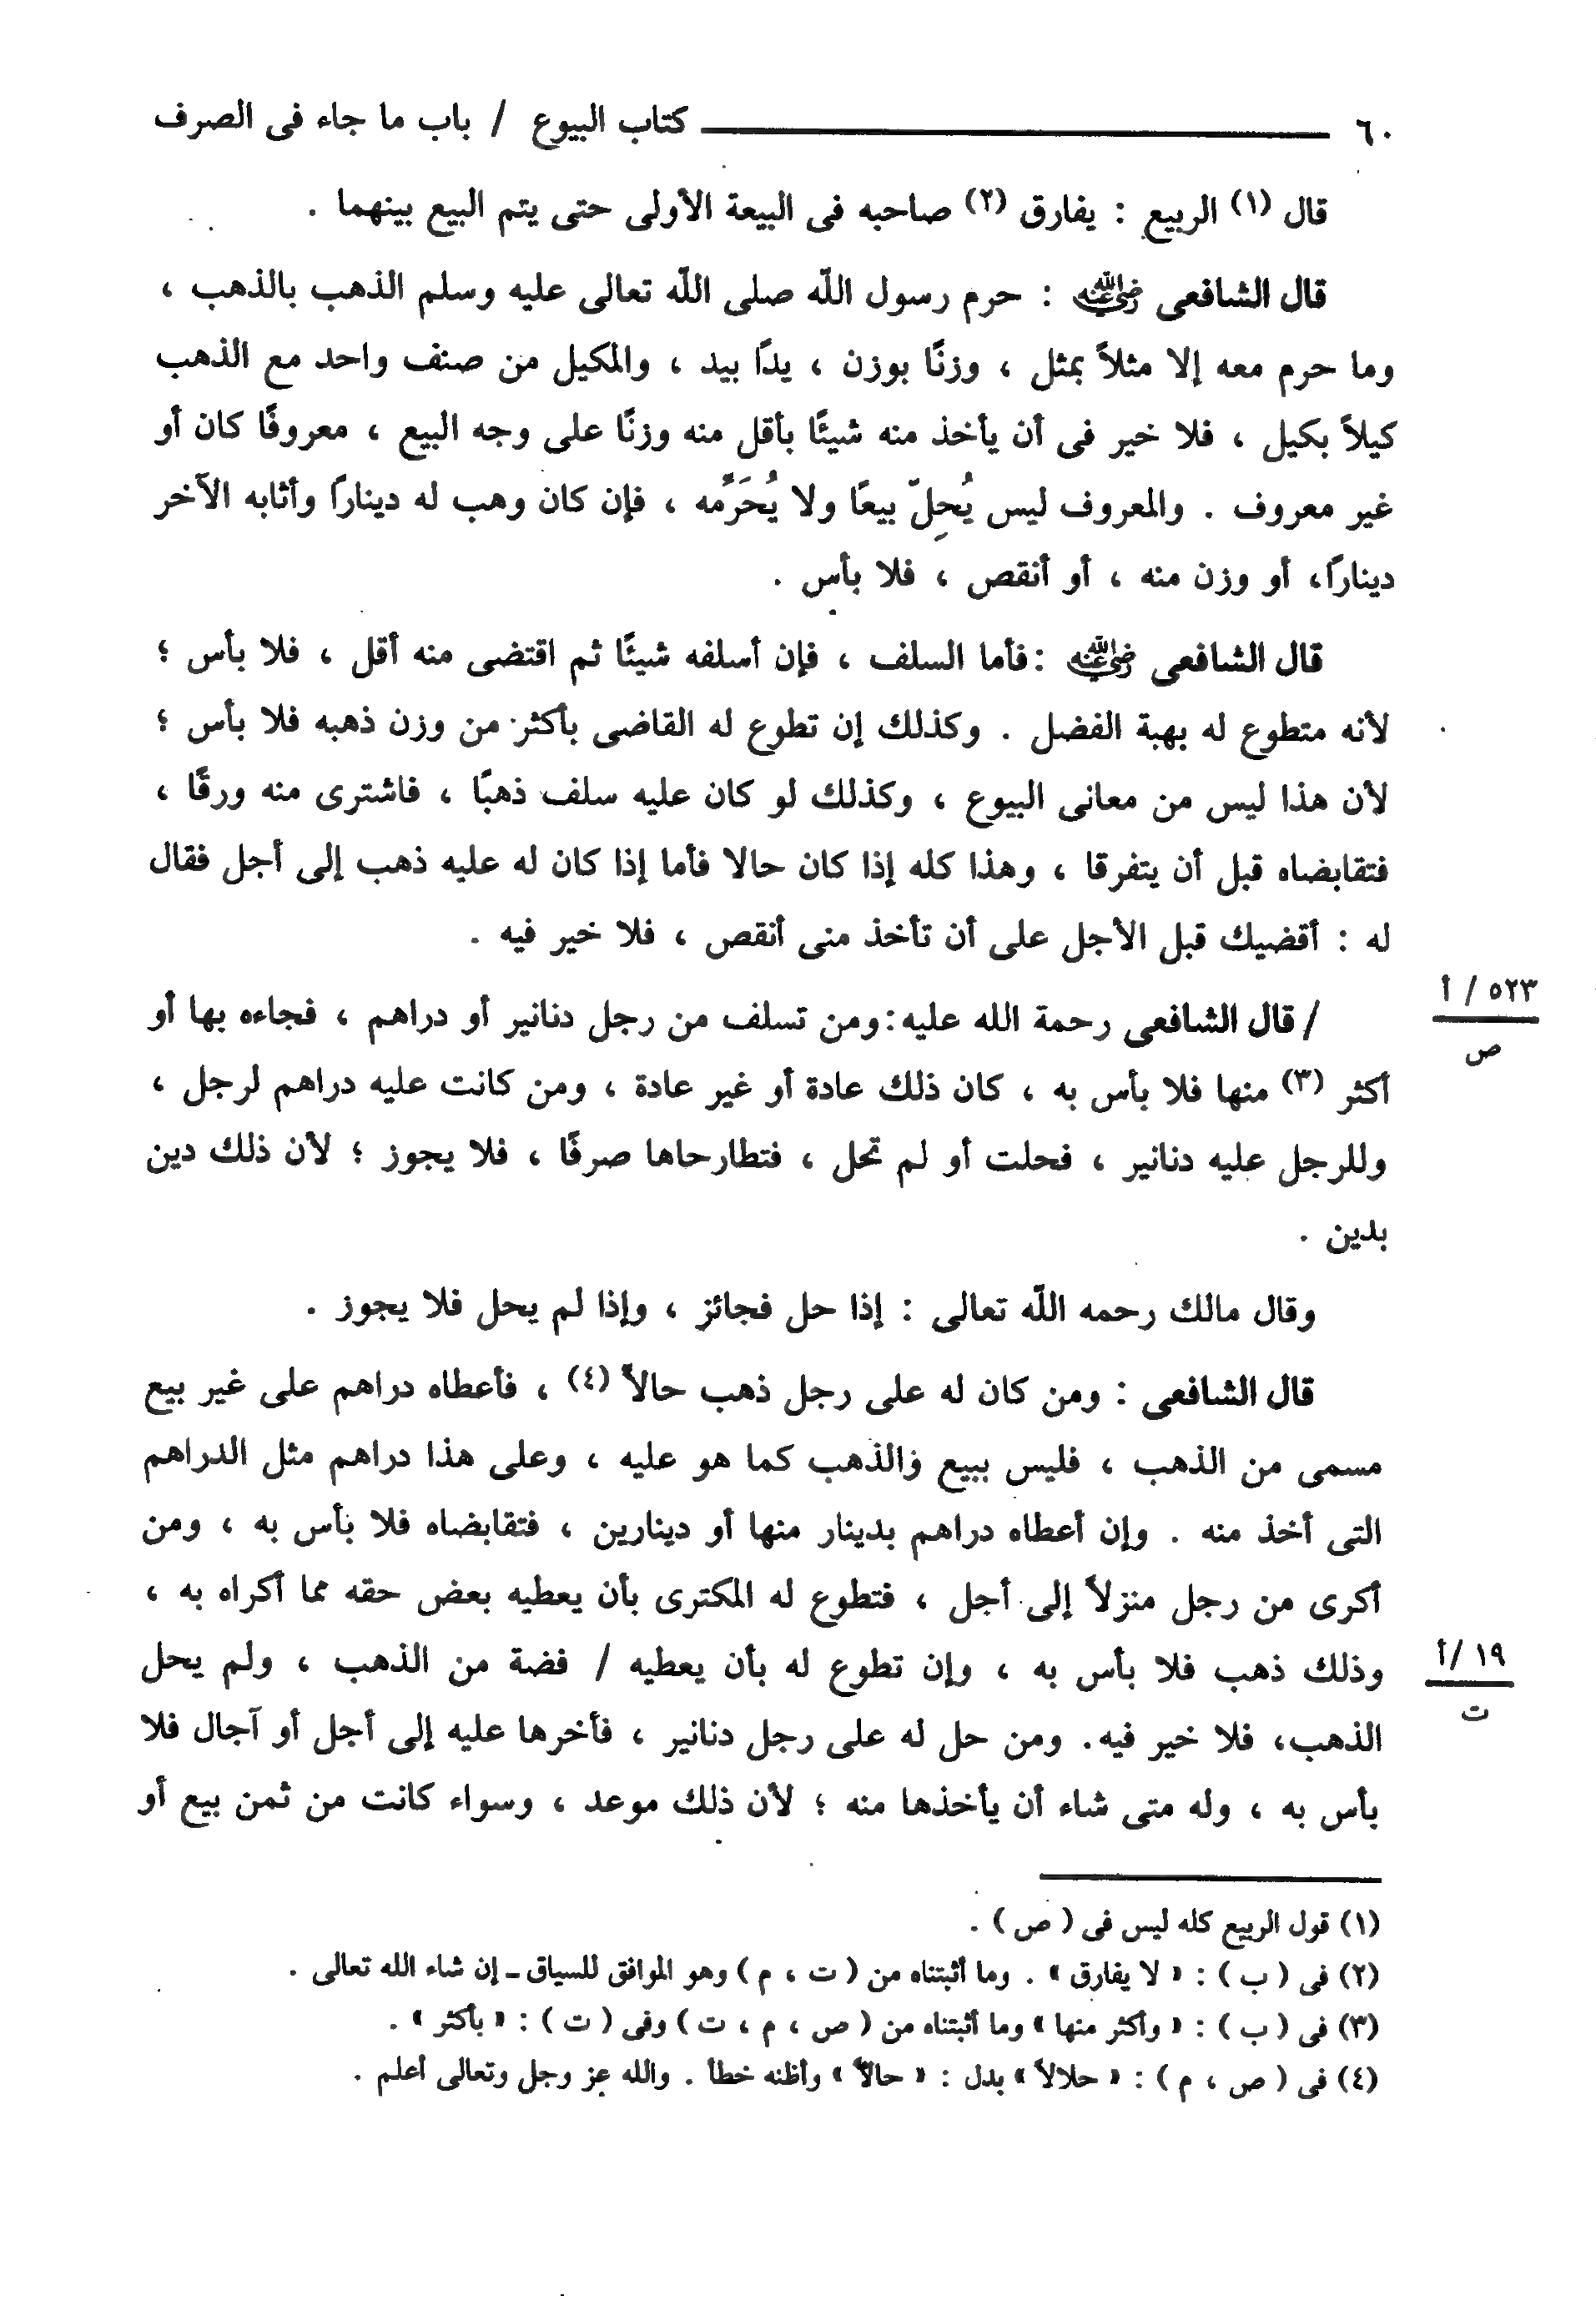 ٦٠ كتاب البيوع / باب ما جاء فى الصرف
قال (١) الربيع : يفارق (٢) صاحبه فى البيعة الأولى حتى يتم البيع بينهما .
قال الشافعى رضي الله عنه : حرم رسول اللّه صلى اللّه تعالى عليه وسلم الذهب بالذهب ،
وما حرم معه إلا مثلاً بمثل ، وزنًا بوزن ، يدًا بيد ، والمكيل من صنف واحد مع الذهب
كيلاً بكيل ، فلا خير فى أن يأخذ منه شيئًا بأقل منه وزنًا على وجه البيع ، معروفًا كان أو
غير معروف . والمعروف ليس يُحِلّ بيعًا ولا يُحَرِّمه ، فإن كان وهب له دينارًا وأثابه الآخر
دينارًا، أو وزن منه ، أو أنقص ، فلا بأس .
قال الشافعى رضي الله عنه :فأما السلف ، فإن أسلفه شيئًا ثم اقتضى منه أقل ، فلا بأس ؛
لأنه متطوع له بهبة الفضل . وكذلك إن تطوع له القاضى بأكثر من وزن ذهبه فلا بأس ؛
لأن هذا ليس من معانى البيوع ، وكذلك لو كان عليه سلف ذهبًا ، فاشترى منه ورقًا ،
فتقابضاه قبل أن يتفرقا ، وهذا كله إذا كان حالا فأما إذا كان له عليه ذهب إلى أجل فقال
له : أقضيك قبل الأجل على أن تأخذ منى أنقص ، فلا خير فيه .
٥٢٣ / أ
ص
/ قال الشافعى رحمة الله عليه:ومن تسلف من رجل دنانير أو دراهم ، فجاءه بها أو
أكثر (٣) منها فلا بأس به ، كان ذلك عادة أو غير عادة ، ومن كانت عليه دراهم لرجل ،
وللرجل عليه دنانير ، فحلت أو لم تحل ، فتطارحاها صرفًا ، فلا يجوز ؛ لأن ذلك دين
بدين .
وقال مالك رحمه اللّه تعالى : إذا حل فجائز ، وإذا لم يحل فلا يجوز .
قال الشافعى : ومن كان له على رجل ذهب حالاً (٤) ، فأعطاه دراهم على غير بيع
مسمى من الذهب ، فليس ببيع والذهب كما هو عليه ، وعلى هذا دراهم مثل الدراهم
التى أخذ منه . وإن أعطاه دراهم بدينار منها أو دينارين ، فتقابضاه فلا بأس به ، ومن
أكرى من رجل منزلاً إلى أجل ، فتطوع له المكترى بأن يعطيه بعض حقه مما أكراه به ،
وذلك ذهب فلا بأس به ، وإن تطوع له بأن يعطيه / فضة من الذهب ، ولم يحل
١٩ /أ
ت
الذهب، فلا خير فيه. ومن حل له على رجل دنانير ، فأخرها عليه إلى أجل أو آجال فلا
بأس به ، وله متى شاء أن يأخذها منه ؛ لأن ذلك موعد ، وسواء كانت من ثمن بيع أو
(١) قول الربيع كله ليس فى ( ص ) .
(٢) فى ( ب ) : « لا يفارق » . وما أثبتناه من ( ت ، م ) وهو الموافق للسياق ـ إن شاء الله تعالى .
(٣) فى ( ب ) : « وأكثر منها » وما أثبتناه من ( ص ، م ، ت ) وفى ( ت ) : « بأكثر » .
(٤) فى ( ص ، م ) : « حلالاً » بدل : « حالاً » وأظنه خطأ . والله عز وجل وتعالى أعلم .